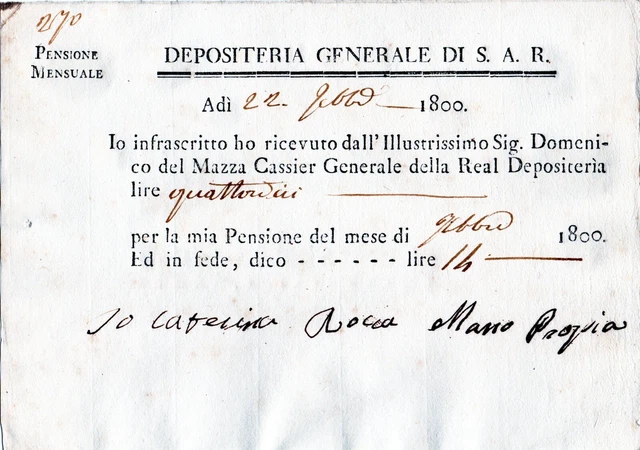 270
PENSIONE
MENSUALE
DEPOSITERIA GENERALE DI S. A. R.
Adì 22. 1800.
Io infrascritto ho ricevuto dall'Illustrissimo Sig. Domeni-
co del Mazza Cassier Generale della Real Depositerìa
lire quattordici
per la mia Pensione del mese di 1800.
Ed in fede, dico - - - - - - lire 14
Io Caterina Rocca Mano Propia